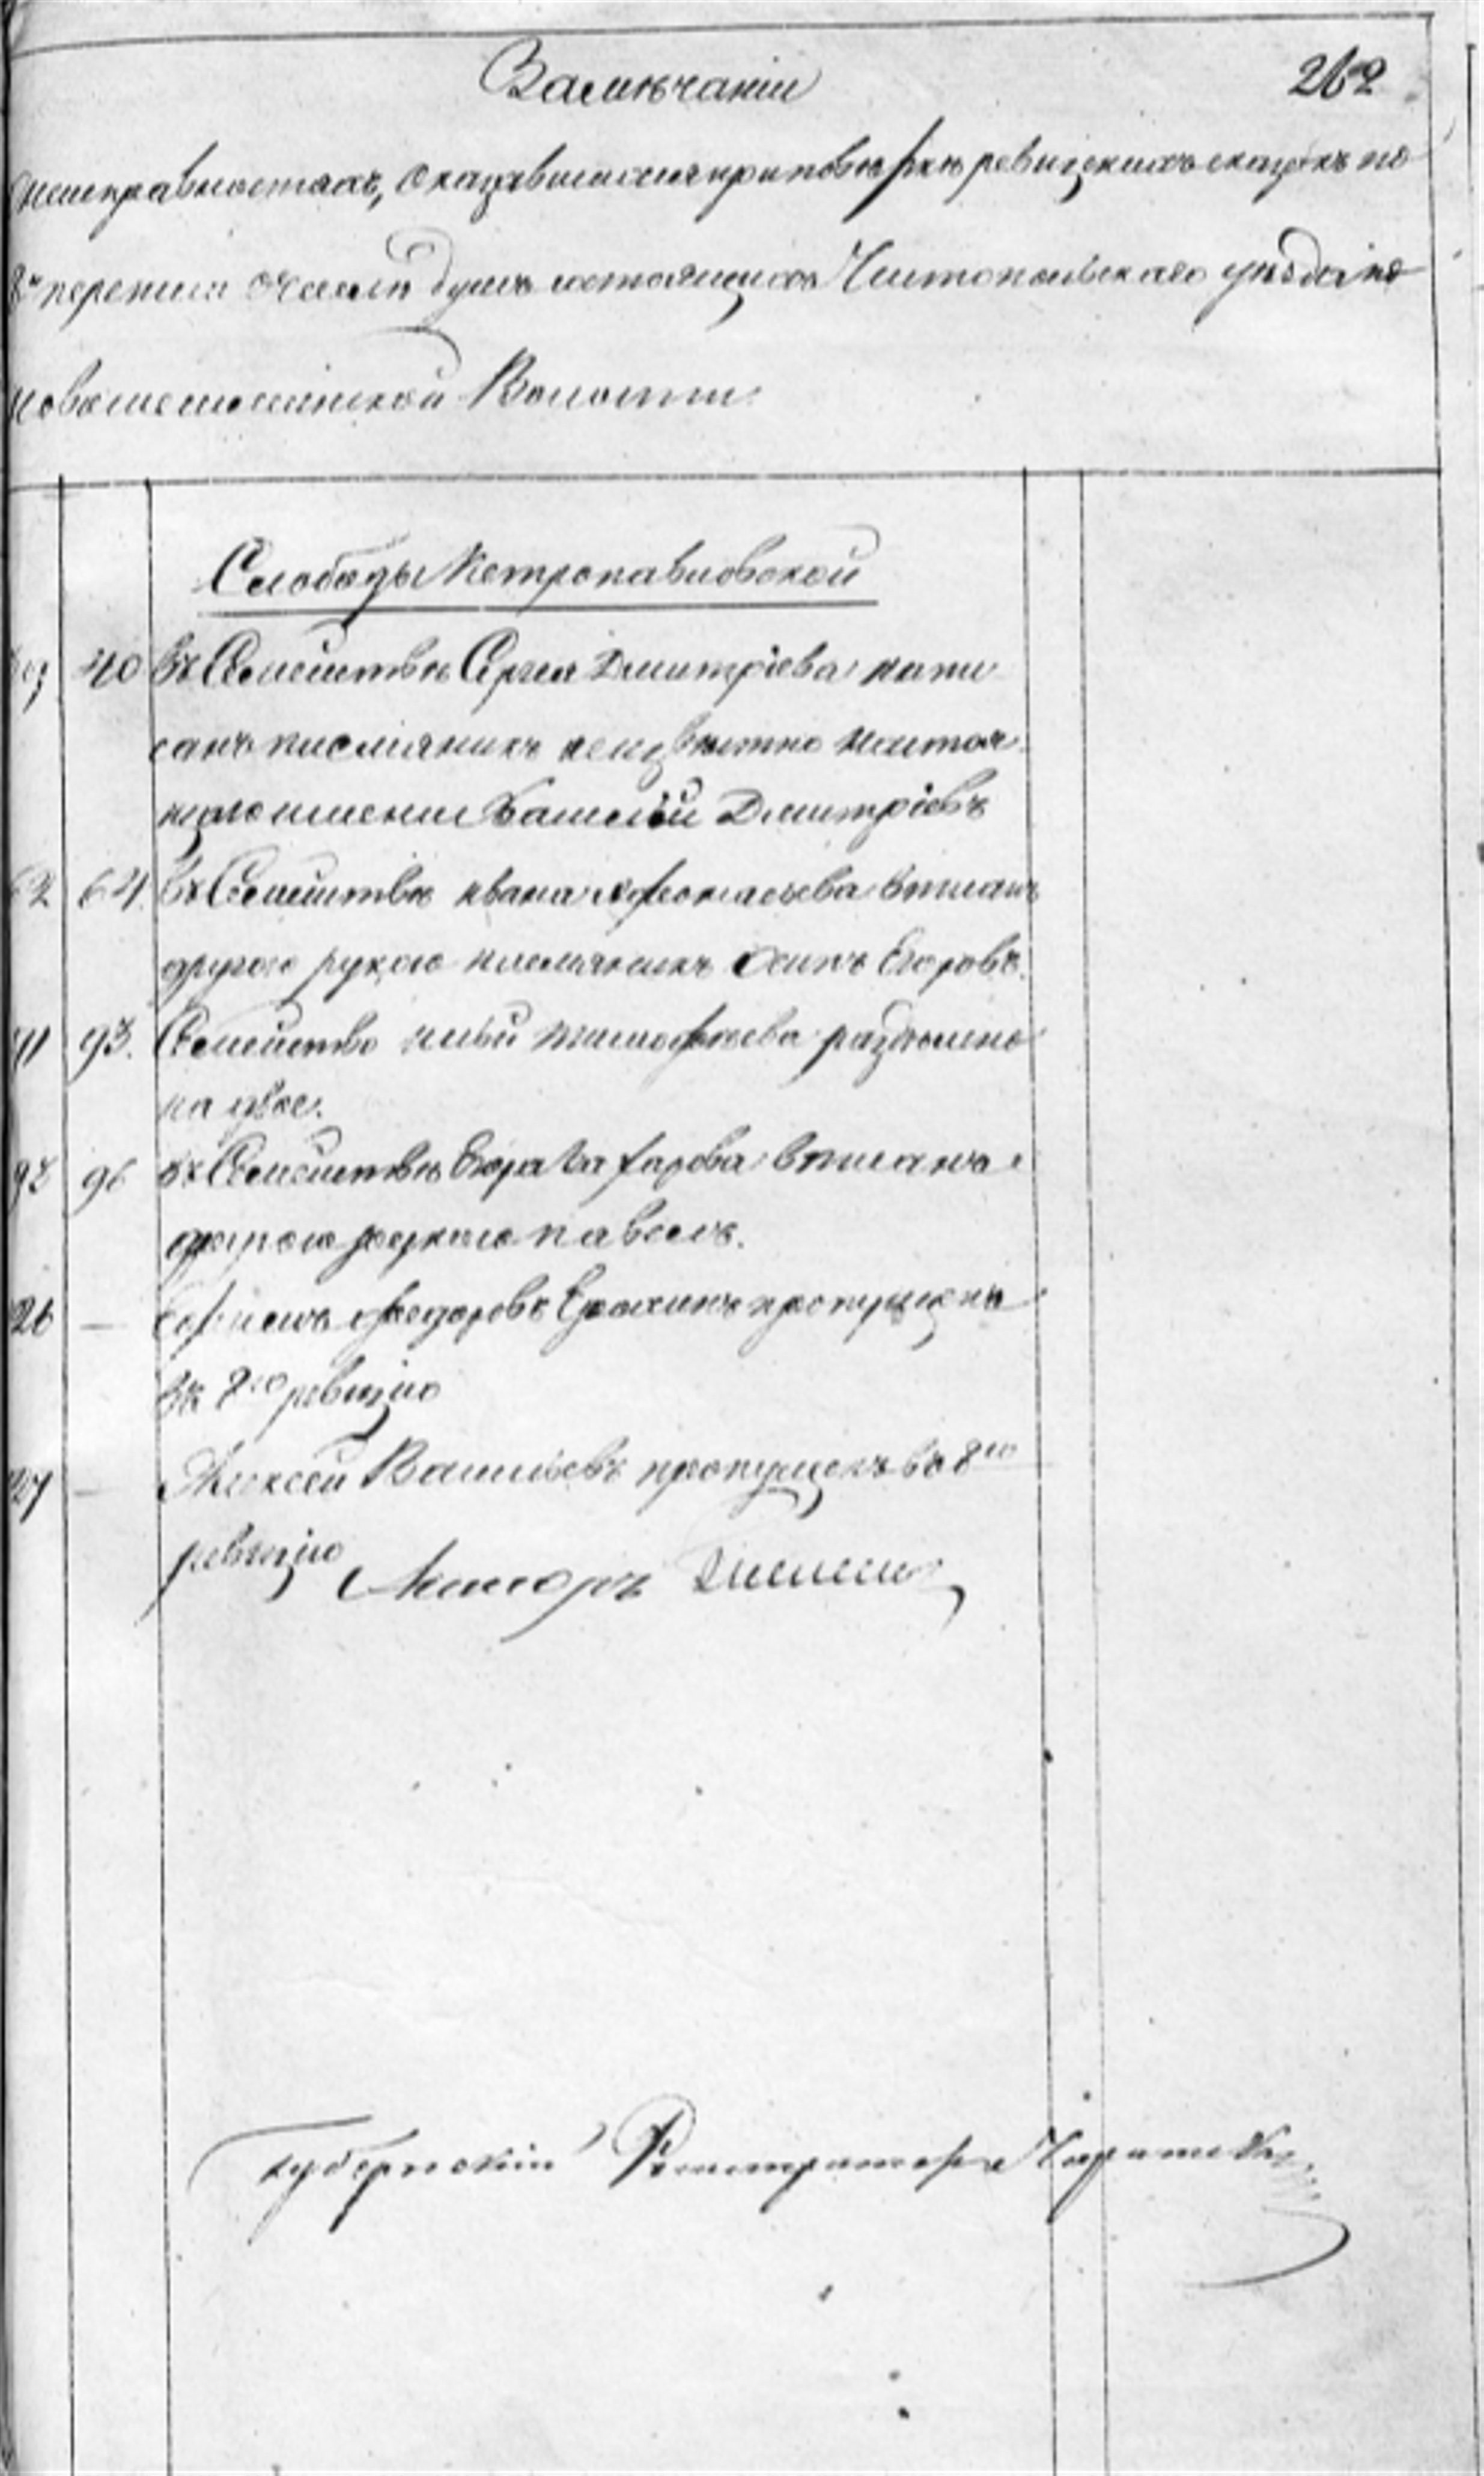 Замѣчаніи 262
неисправностяхъ, оказавшихся при повѣркѣ ревизскихъ сказокъ по
8й переписи о числѣ душъ состоящихъ Чистопольскаго уѣзда по
Новошешминской Волости
Слободы Петропавловской
40 Въ Семействѣ Сергея Дмитріева напи
санъ племянникъ неизвѣстно настоя
щаго имени Василій Дмитріевъ
62 64. Въ Семействѣ Ивана Афонасьева вписанъ
другою рукою племянникъ Осипъ Егоровъ.
71 93. Семейство Ильи Тимофѣева раздѣлено
на двое.
92 96 Въ Семействѣ Егора Захарова вписанъ
другою рукою Павелъ.
26 — Федоровъ пропущенъ
въ 8ю ревизію
27 — Алексей Васильевъ пропущенъ въ 8ю
ревизію Маиоръ
Губернскій Регистраторъ